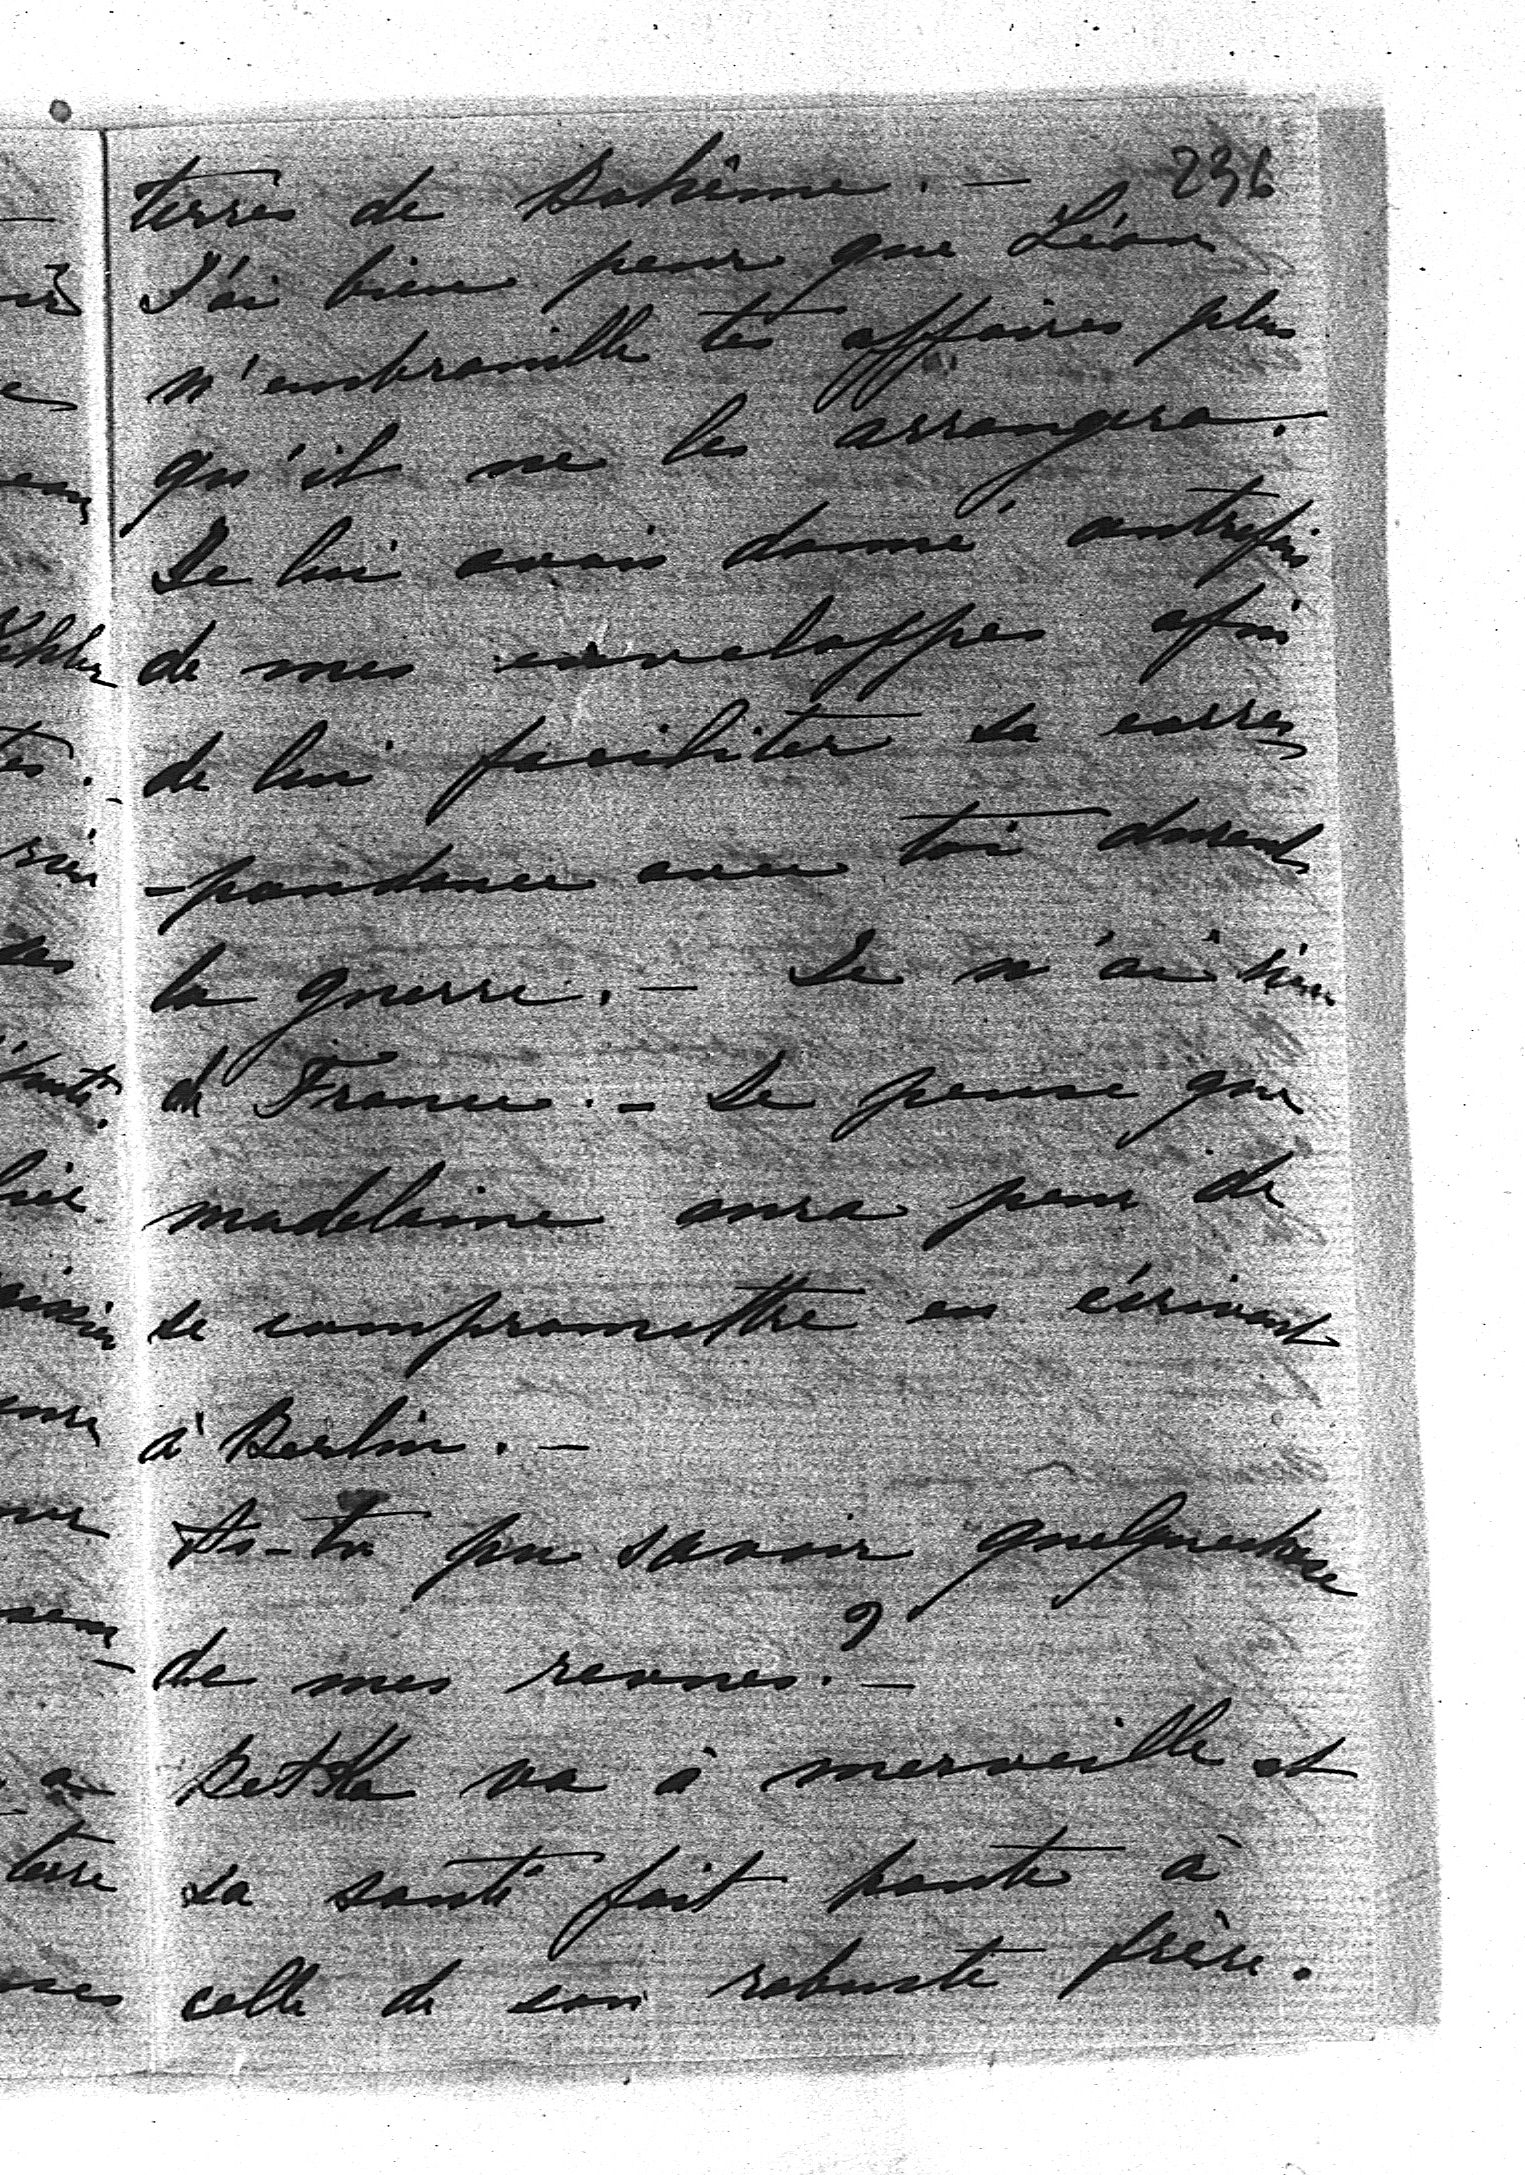 236
terres de Bohême. —
J'ai bien peur que Léon
n'embrouille tes affaires plus
qu'il ne les arrangera.
Je lui avais donné autrefois
de mes enveloppes afin
de lui faciliter sa corres
-pondance avec toi durant
la guerre. — Je n'ai rien
de France. — Je pense que
Madelaine aura peur de
se compromettre en écrivant
à Berlin. —
As-tu pu savoir quelquechose
de mes revues? —
Betka va à merveille et
sa santé fait honte à
celle de son robuste frère.